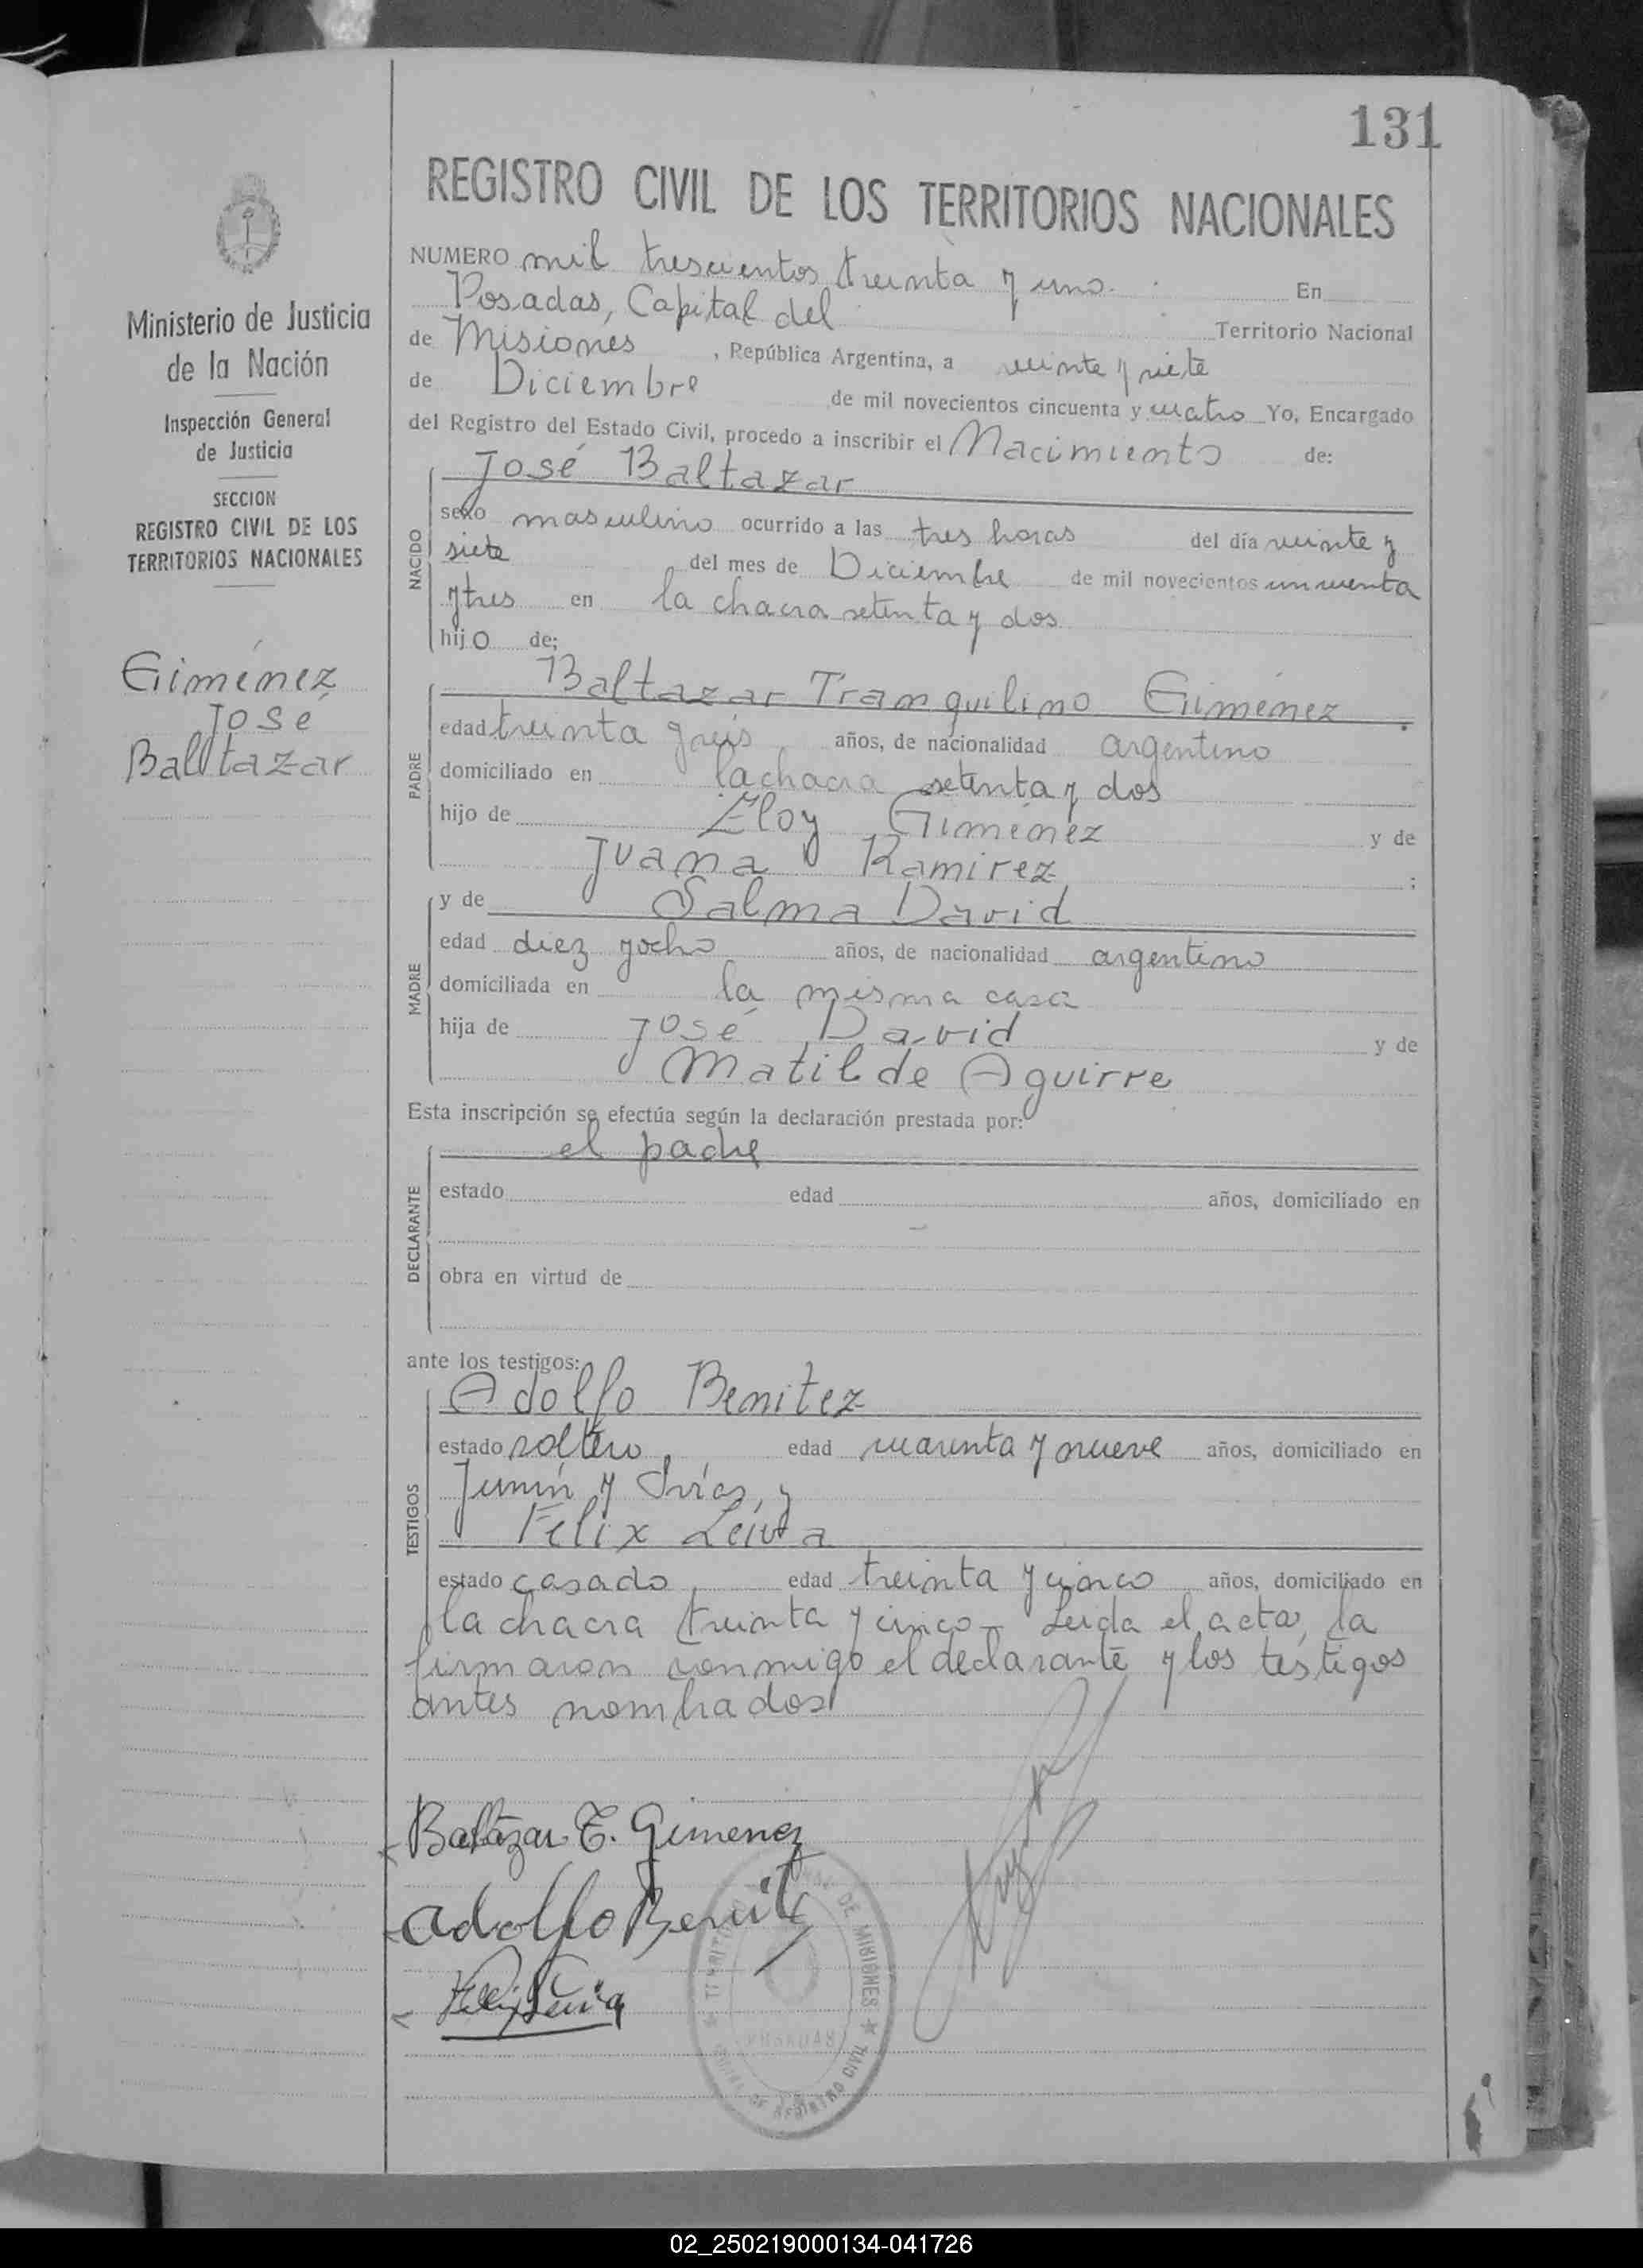 131
REGISTRO CIVIL DE LOS TERRITORIOS NACIONALES
Ministerio de Justicia
de la Nación
Inspección General
de Justicia
SECCION
REGISTRO CIVIL DE LOS
TERRITORIOS NACIONALES
Giménez
José
Baltazar
NUMERO mil trescientos treinta y uno. En
Posadas, Capital del Territorio Nacional
de Misiones, República Argentina, a veinte y siete
de Diciembre de mil novecientos cincuenta y cuatro Yo, Encargado
del Registro del Estado Civil, procedo a inscribir el Nacimiento de:
José Baltazar
NACIDO
sexo masculino ocurrido a las tres horas del día veinte y
siete del mes de Diciembre de mil novecientos cincuenta
y tres en la chacra setenta y dos
hijo de;
Baltazar Tranquilino Giménez
PADRE
edad treinta y seis años, de nacionalidad argentino
domiciliado en la chacra setenta y dos
hijo de Eloy Giménez y de
Juana Ramirez ;
y de Salma David
MADRE
edad diez y ocho años, de nacionalidad argentino
domiciliada en la misma casa
hija de José David y de
Matilde Aguirre
Esta inscripción se efectúa según la declaración prestada por:
el padre
DECLARANTE
estado edad años, domiciliado en
obra en virtud de
ante los testigos:
Adolfo Benitez
TESTIGOS
estado soltero, edad cuarenta y nueve años, domiciliado en
Junín y , y
Felix Leiva
estado casado, edad treinta y cinco años, domiciliado en
la chacra treinta y cinco - Leida el acta, la
firmaron conmigo el declarante y los testigos
antes nombrados
Baltazar T. Gimenez
Adolfo Benitz
Felix Leiva
DE MISIONES
POSADAS
REGISTRO CIVIL
02_250219000134-041726